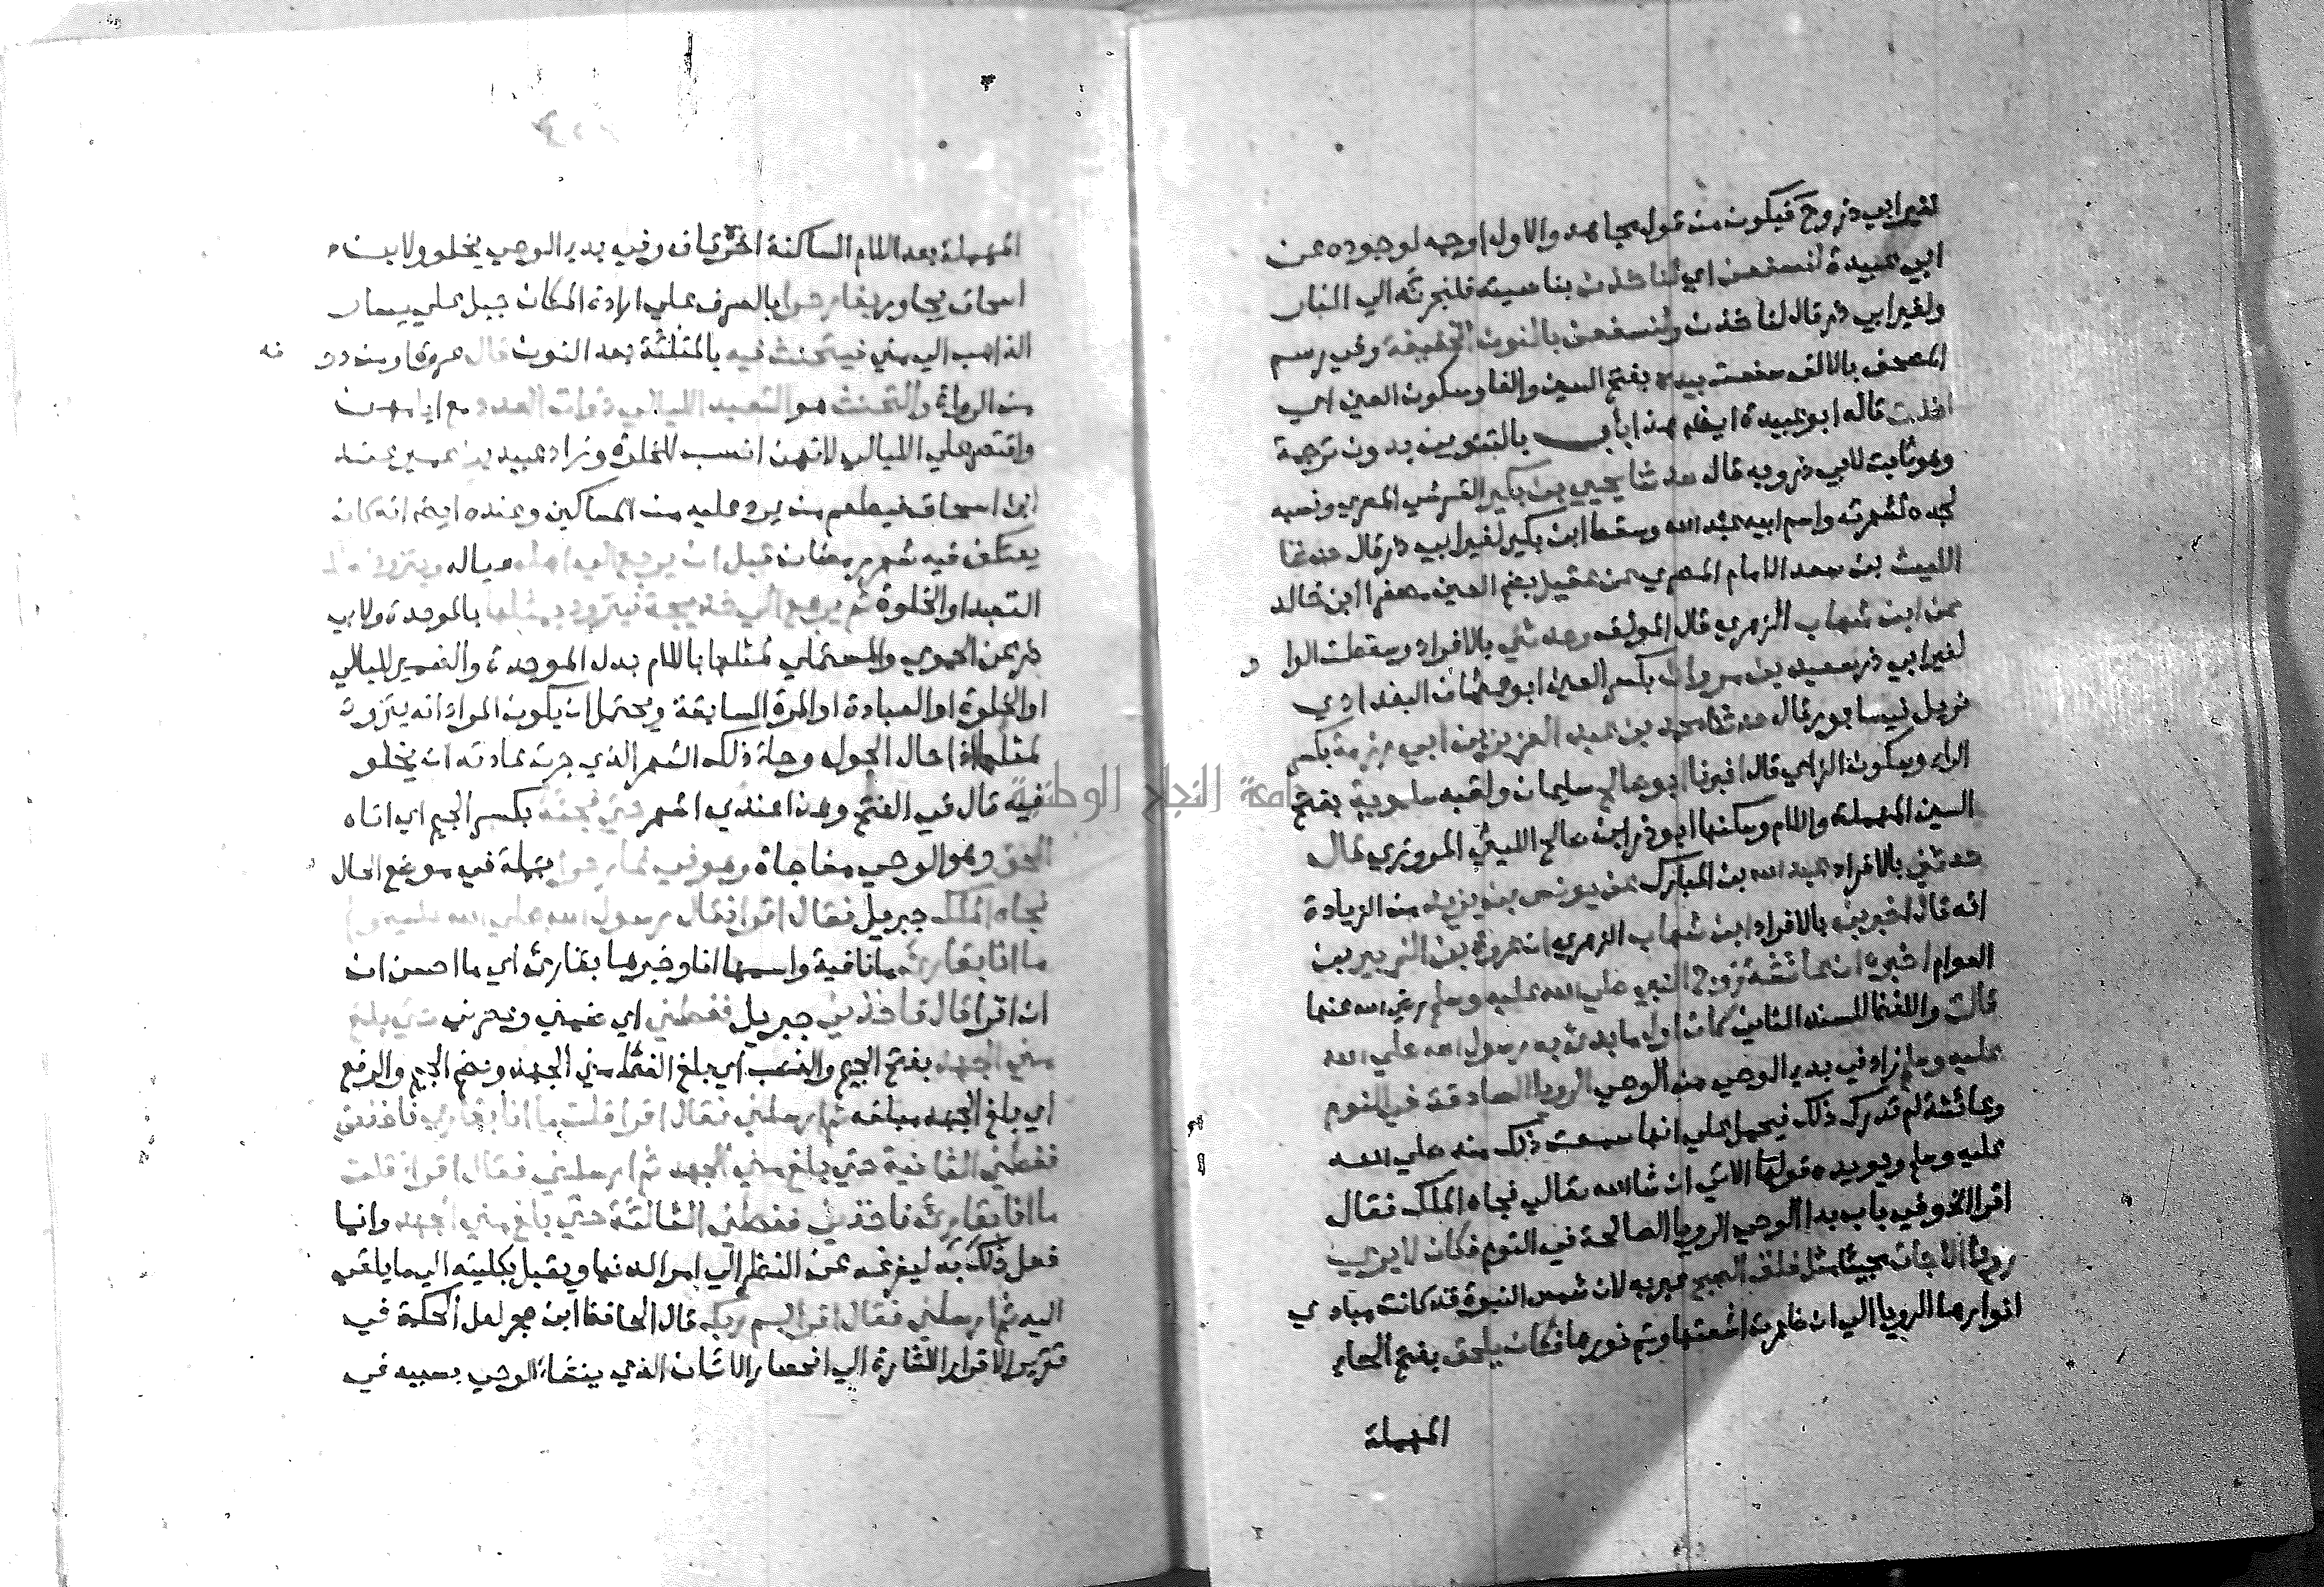 لغير ابي ذر وح فيكون من قول مجاهد والاول اوجه لوجوده عن
ابي عبيدة لنسفعن اي لناخذن بناصيته فلنجرنه الي النار
ولغير ابي ذر قال لناخذن ولنسفعن بالنون الخفيفة وفي رسم
المصحف بالالف سفعت بيده بفتح السين والفا وسكون العين اي
اخذت قاله ابو عبيدة ايضا هذا باب بالتنوين بدون ترجمة
وهو ثابت لابي ذر وبه قال حدثنا يحيي بن بكير القرشي المصري ونسبه
لجده لشهرته واسم ابيه عبد الله وسقط ابن بكير لغير ابي ذر قال حدثنا
الليث بن سعد الامام المصري عن عقيل بضم العين مصغرا ابن خالد
عن ابن شهاب الزهري قال المولف وحدثني بالافراد وسقطت الوا و
لغير ابي ذر سعيد بن مروان بكسر العين ابو عثمان البغدادي
نزيل نيسابور قال حدثنا محمد بن عبد العزيز بن ابي رزمة بكسر
الراء وسكون الزاي قال اخبرنا ابو صالح سليمان ولقبه سلموية بفتح
السين المهملة واللام وسكنها ابو ذر ابن صالح الليثي المروزي قال
حدثني بالافراد عبد الله بن المبارك عن يونس بن يزيد من الزيادة
انه قال اخبرني بالافراد ابن شهاب الزهري ان عروة بن الزبير بن
العوام اخبره ان عائشة زوج النبي صلي الله عليه وسلم رضي الله عنها
قالت واللفظ للسند الثاني كان اول ما بدئ به رسول الله صلي الله
عليه وسلم زاد في بدء الوحي من الوحي الرويا الصادقة في النوم
وعائشة لم تدرك ذلك فيحمل علي انها سمعت ذلك منه صلي الله
عليه وسلم ويويده قولها الاتي ان شا الله تعالي فجاه الملك فقال
اقرا الخ وفي باب بدا الوحي الرويا الصالحة في النوم فكان لا يري
رويا الا جات مجيئا مثل فلق الصبح عبر به لان شمس النبوة قد كانت مبادي
انوارها الرويا الي ان ظهرت اشعتها وتم نورها فكان يلحق بفتح الحاء
المهملة
المهملة بعد اللام الساكنة اخره قاف وفي بدء الوحي يخلو ولابن
اسحاق يجاور بغار حرا بالصرف علي ارادة المكان جبل علي يسار
الذاهب الي مني فيتحنث فيه بالمثلثة بعد النون قال عروة او من دو نه
من الرواة والتحنث هو التعبد الليالي ذوات العدد مع ايامهن
واقتصر علي الليالي لانهن انسب للخلوة وزاد عبيد بن عمير عند
ابن اسحاق فيطعم من يرد عليه من المساكين وعنده ايضا انه كان
يعتكف فيه شهر رمضان قبل ان يرجع الي اهله عياله ويتزود لذلك
التعبد او الخلوة ثم يرجع الي خديجة فيتزود بمثلها بالموحدة ولابي
ذر عن الحموي والمستملي لمثلها باللام بدل الموحدة والضمير لليالي
او الخلوة او العبادة او المرة السابقة ويحتمل ان يكون المراد انه يتزود
لمثلها اذا حال الحول وجاء ذلك الشهر الذي جرت عادته ان يخلو
فيه قال في الفتح وهذا عندي اظهر حتي فجئه بكسر الجيم اي اتاه
الحق وهو الوحي مفاجاة وهو في غار حرا جملة في موضع الحال
فجاه الملك جبريل فقال اقرا فقال رسول الله صلي الله عليه وسلم
ما انا بقارئ ما نافية واسمها انا وخبرها بقارئ اي ما احسن ان
ان اقرا قال فاخذني جبريل فغطني اي ضمني وعصرني حتي بلغ
مني الجهد بفتح الجيم والنصب اي بلغ الغط مني الجهد وبضم الجيم والرفع
اي بلغ الجهد مبلغه ثم ارسلني فقال اقرا قلت ما انا بقارئ فاخذني
فغطني الثانية حتي بلغ مني الجهد ثم ارسلني فقال اقرا قلت
ما انا بقارئ فاخذني فغطني الثالثة حتي بلغ مني الجهد وانما
فعل ذلك به ليفرغه عن النظر الي امر الدنيا ويقبل بكليته الي ما يلقي
اليه ثم ارسلني فقال اقرا باسم ربك قال الحافظ ابن حجر لعل الحكمة في
تكرير الاقرا الاشارة الي انحصار الايمان الذي ينشا الوحي بسببه في
جامعة النجاح الوطنية